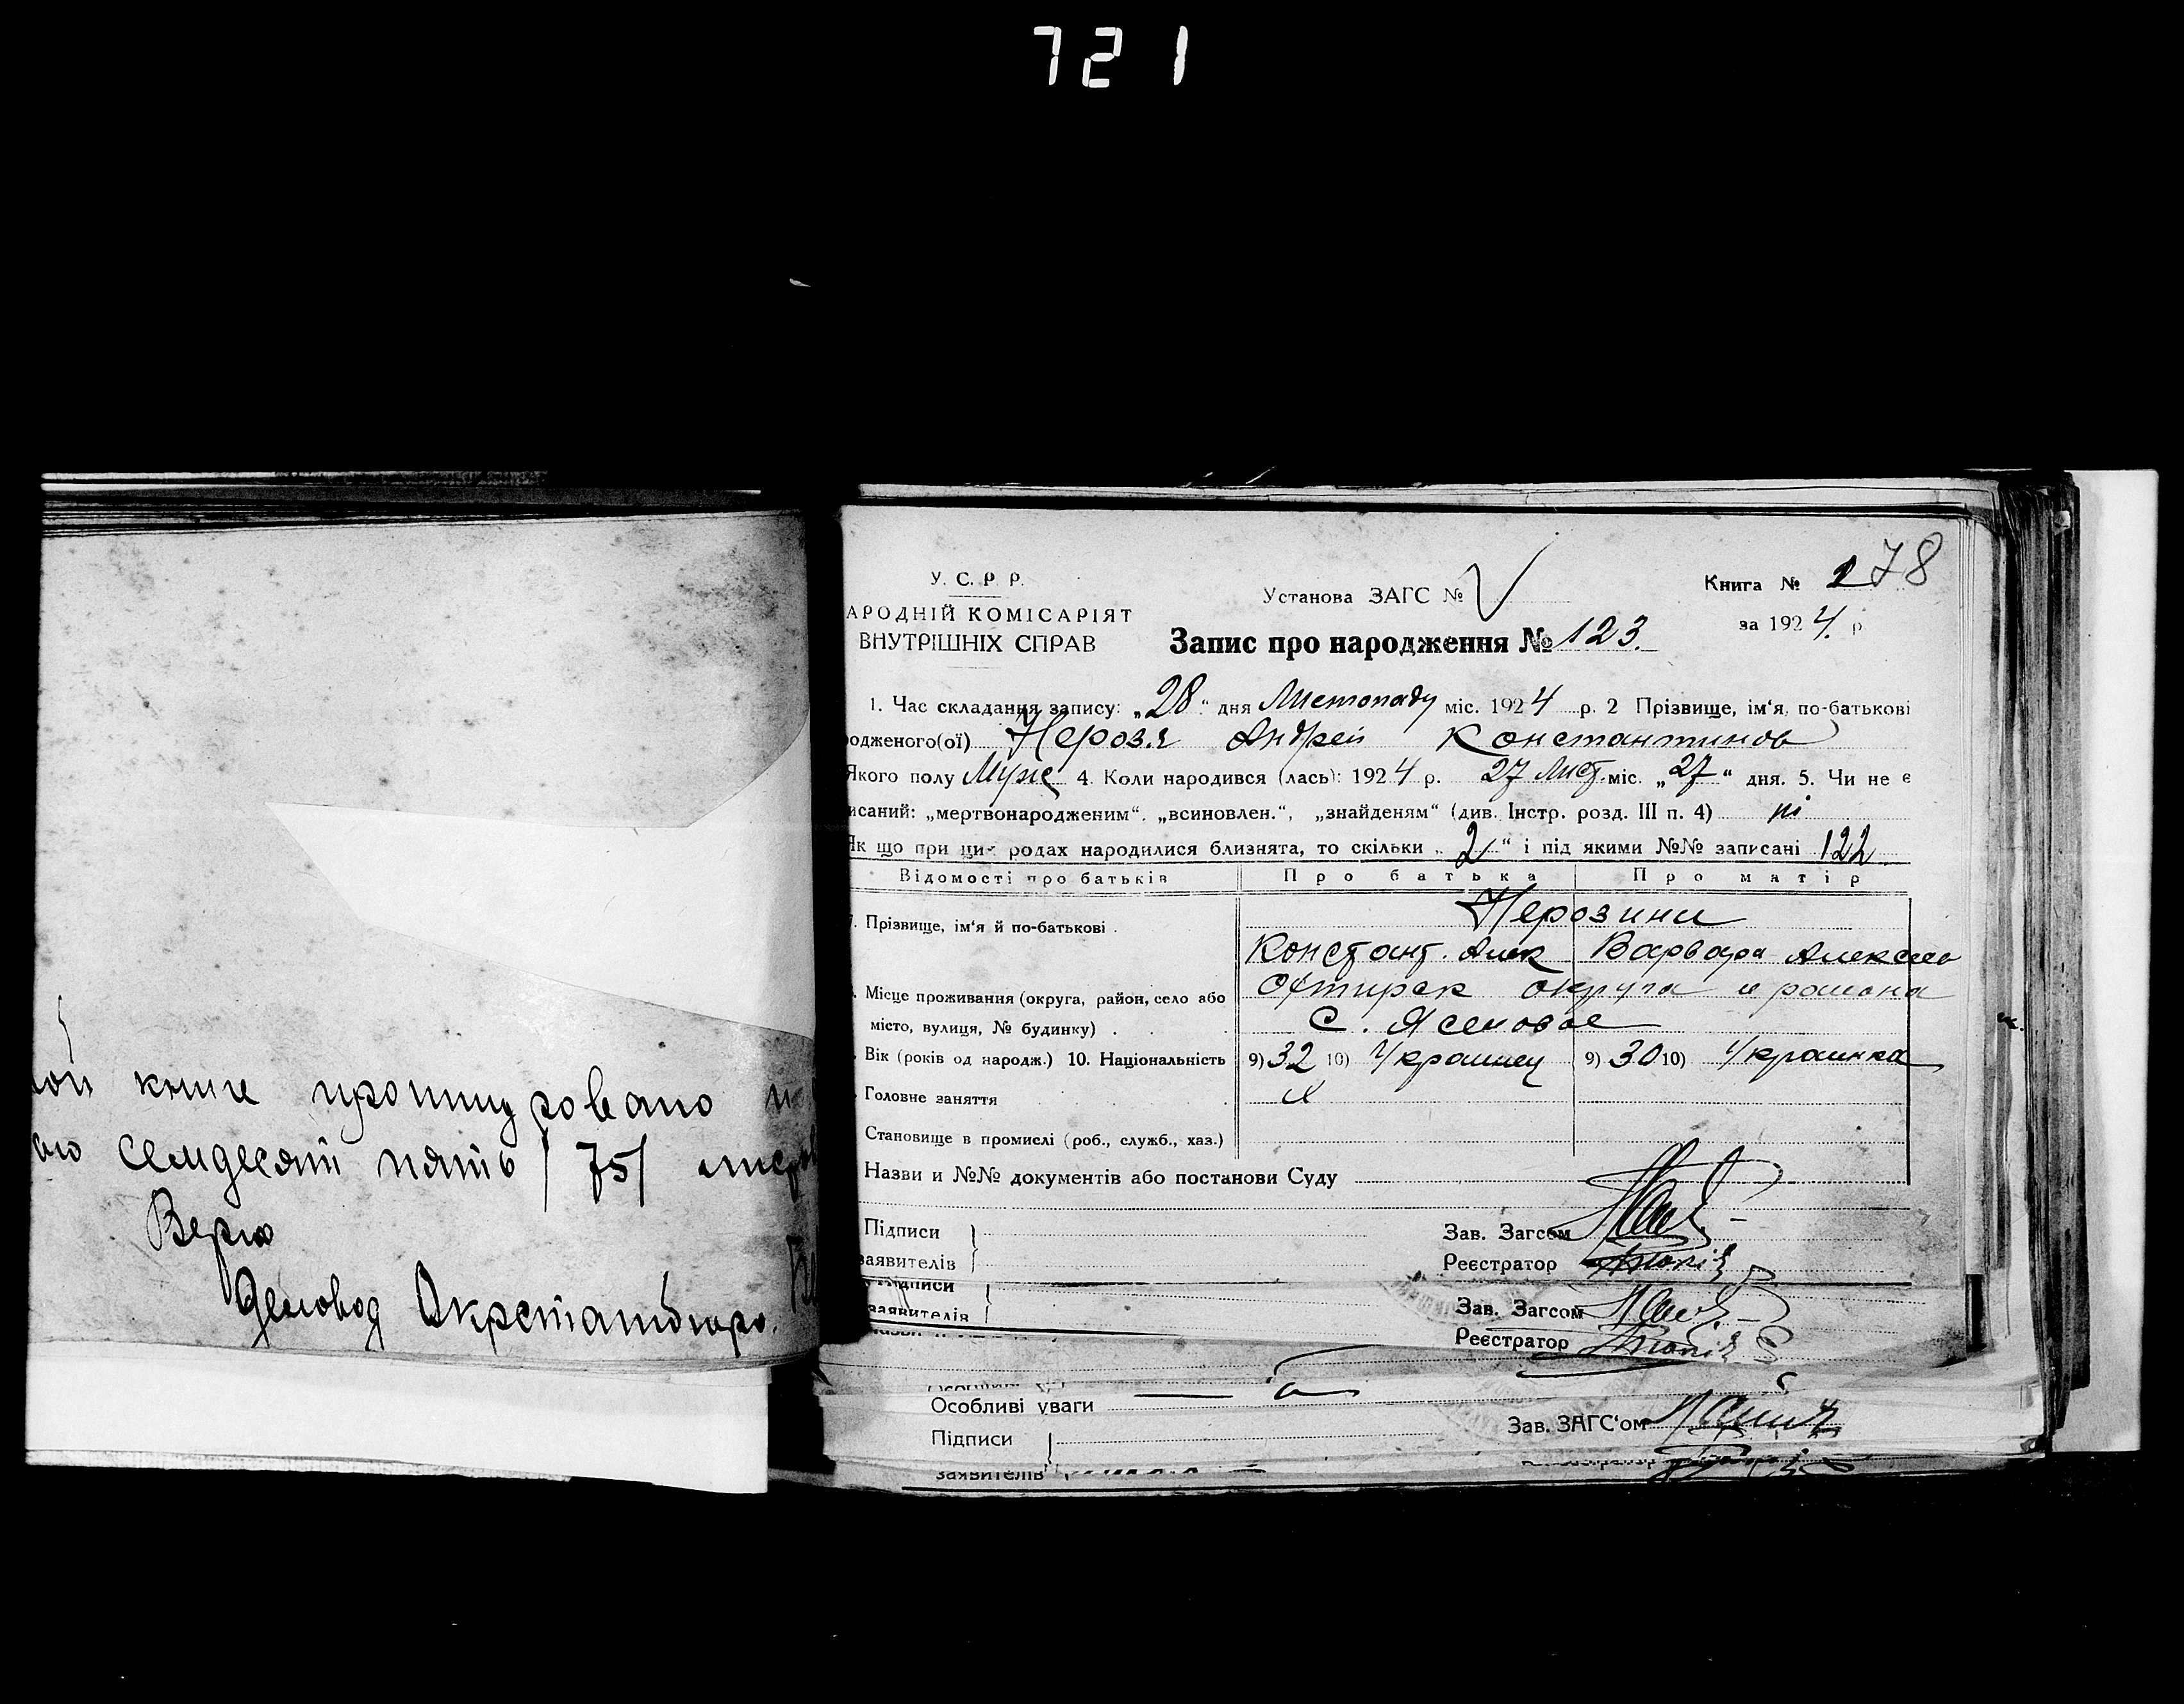 721
ой книге прошнуровано и
ого семдесят пять /75/ листов
Верно
Деловод Окрстатбюро.
У. С. Р. Р.
АРОДНІЙ КОМІСАРІЯТ
ВНУТРІШНІХ СПРАВ
Установа ЗАГС №
Запис про народження № 123.
Книга № 1 78
за 1924. р
1. Час складання запису: „28“ дня Листопаду міс. 1924 р. 2 Прізвище, ім‘я, по-батькові
одженого(ої) Нероз.я Андрей Константинов
Якого полу Муже 4. Коли народився (лась): 1924 р. 27 Лист. міс. „27“ дня. 5. Чи не є
исаний: „мертвонародженим“. „всиновлен.“, „знайденям“ (див. Інстр. розд. III п. 4) ні
Як що при цих родах народилися близнята, то скільки „2“ і під якими №№ записані 122
Відомості про батьків Про батька Про матір
7. Прізвище, ім‘я й по-батькові . Нерозини
Констант. Алек Варвара Алексеев
. Місце проживання (округа, район, село або Охтирск округа и района
місто, вулиця, № будинку) . . . С. Ясеновое
. Вік (років од народж.) 10. Національність 9) 32 10) Украинец 9) 30 10) Украинка
Головне заняття . . .
Становище в промислі (роб., служб., хаз.)
Назви и №№ документів або постанови Суду
Підписи
заявителів
Зав. Загсом
Реєстратор
Підписи
заявителів
Зав. Загсом
Реєстратор
Особливі уваги
Підписи
заявителів
Зав. ЗАГС‘ом